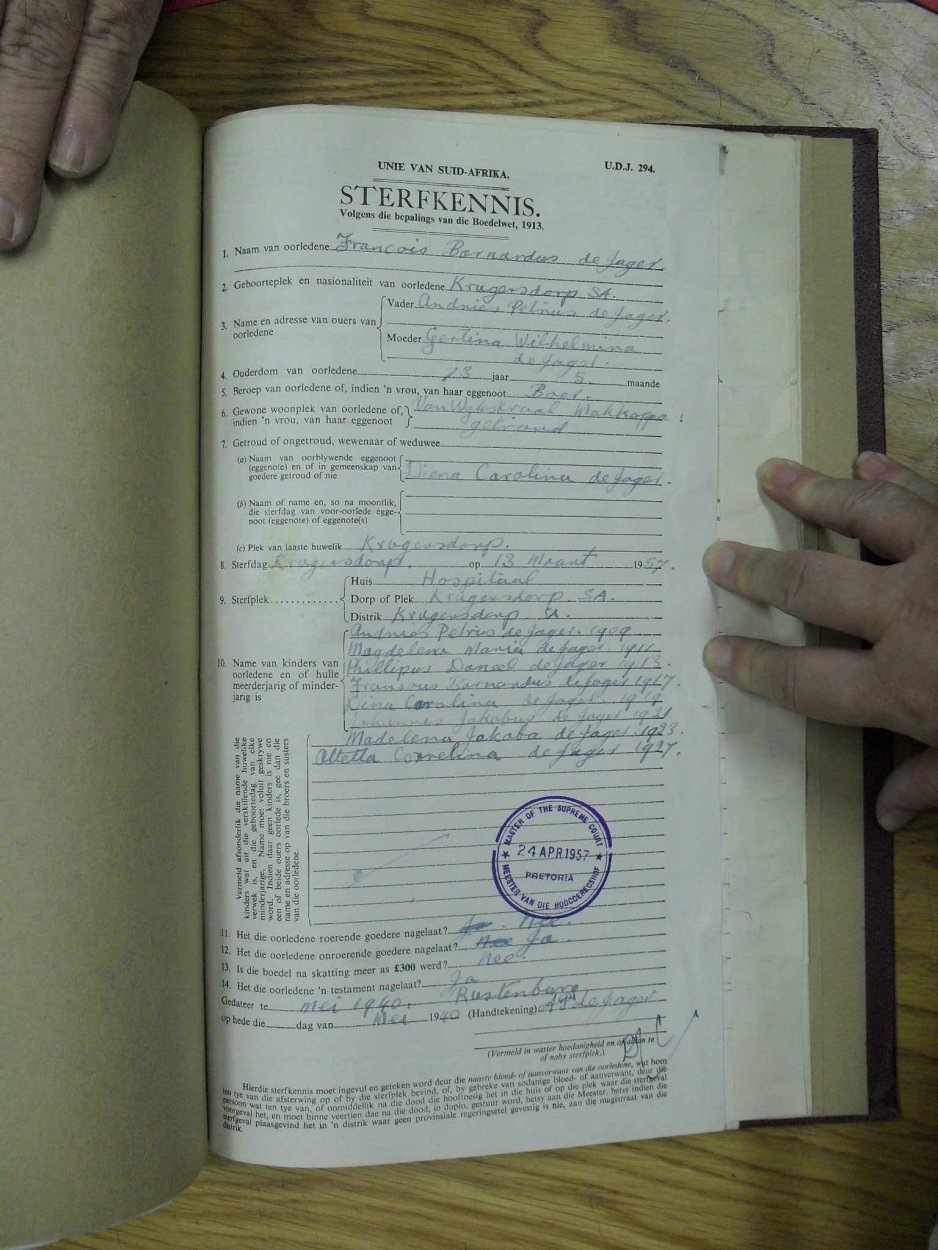 UNIE VAN SUID-AFRIKA. U.D.J. 294.
STERFKENNIS.
Volgens die bepalings van die Boedelwet, 1913.
1. Naam van oorledene Francois Barnardus de Jager
2. Geboorteplek en nasionaliteit van oorledene Krugersdorp SA.
3. Name en adresse van ouers van oorledene
Vader Andries Petrus de Jager.
Moeder Gertina Wilhelmina
de Jager.
4. Ouderdom van oorledene 73 jaar 5 maande
5. Beroep van oorledene of, indien 'n vrou, van haar eggenoot Boer.
6. Gewone woonplek van oorledene of, indien 'n vrou, van haar eggenoot
Van Wykskraal Makkoppa
getroud
7. Getroud of ongetroud, wewenaar of weduwee
(a) Naam van oorblywende eggenoot (eggenote) en of in gemeenskap van goedere getroud of nie
Diena Carolina de Jager.
(b) Naam of name en, so na moontlik, die sterfdag van voor-oorlede eggenoot (eggenote) of eggenote(s)
(c) Plek van laaste huwelik Krugersdorp.
8. Sterfdag Krugersdorp. op 13 Maart 1957.
9. Sterfplek
Huis Hospitaal
Dorp of Plek Krugersdorp SA.
Distrik Krugersdorp
10. Name van kinders van oorledene en of hulle meerderjarig of minderjarig is
Andries Petrus de Jager. 1909
Magdelena Maria de Jager 1911
Phillipus Daneel de Jager 1913.
Barnardus de Jager 1917.
Dina Carolina de Jager 1919
Johannes Jakobus de Jager 1921
Madelena Jakoba de Jager 1923
Cornelina de Jager 1927.
Vermeld afsonderlik die name van die kinders wat uit die verskillende huwelike verwek is, en die geboortedag van elke minderjarige. Name moet voluit geskrywe word. Indien daar geen kinders is nie en een of beide ouers oorlede is, gee dan die name en adresse op van die broers en susters van die oorledene.
MASTER OF THE SUPREME COURT
24 APR 1957
PRETORIA
MEESTER VAN DIE HOOGGEREGSHOF
11. Het die oorledene roerende goedere nagelaat? Ja. Nee.
12. Het die oorledene onroerende goedere nagelaat? Nee Ja.
13. Is die boedel na skatting meer as £300 werd? Nee
14. Het die oorledene 'n testament nagelaat? Ja
Rustenburg
Gedateer te Mei 1940.
op hede die dag van Mei 1940 (Handtekening) de Jager
(Vermeld in watter hoedanigheid en of al dan te of naby sterfplek.)
Hierdie sterfkennis moet ingevul en geteken word deur die naaste bloed- of aanverwant van die oorledene, wat hom
ten tye van die afsterwing op of by die sterfplek bevind, of, by gebreke van sodanige bloed- of aanverwant, deur die
persoon wat ten tye van, of onmiddellik na die dood die hooftoesig het in die huis of op die plek waar die sterfgeval
voorgeval het, en moet binne veertien dae na die dood, in duplo, gestuur word, hetsy aan die Meester, hetsy indien die
sterfgeval plaasgevind het in 'n distrik waar geen provinsiale regeringsetel gevestig is nie, aan die magistraat van die
distrik.